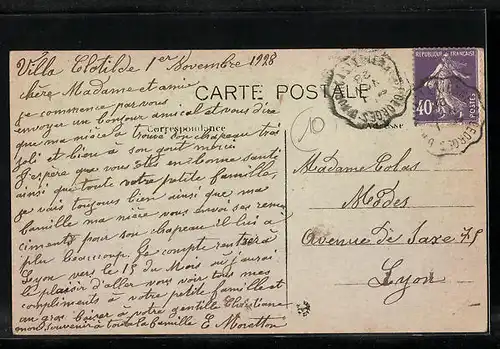 Villa Clotilde 1er Novembre 1928
CARTE POSTALE
chère Madame et amie
je commence par vous
envoyer un bonjour amical et vous dire
que ma nièce a trouvé son chapeau très
joli et bien à son goût moins
Correspondance
J'espère que vous êtes en bonne santé
ainsi que toute votre petite famille,
je vais toujours bien ainsi que ma
famille ma nièce vous envoi ses remer
ciments pour son chapeau il lui a
plu beaucoup. Je compte rentrer à
Lyon vers le 15 du Mois où j'aurai
le plaisir d'aller vous voir tous mes
compliments à votre petite famille et
un gros baiser à votre gentille Christiane
mon souvenir à toute la famille E. Moretton
10
REPUBLIQUE FRANÇAISE
40c
POSTES
Madame Colas
Modes
Avenue de Saxe 75
Lyon